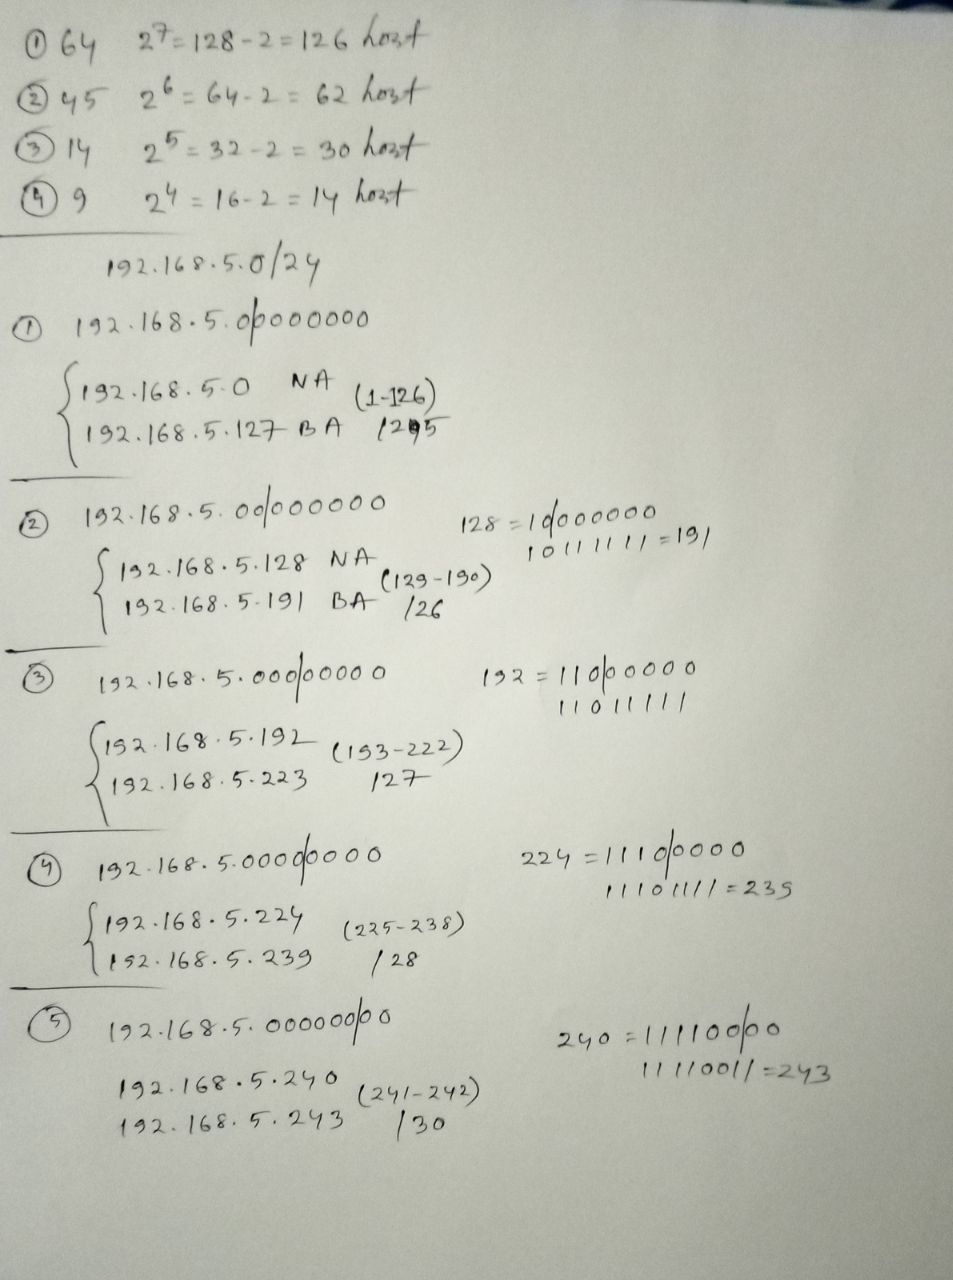 ① 64 2⁷=128-2=126 host
② 45 2⁶=64-2=62 host
③ 14 2⁵=32-2=30 host
④ 9 2⁴=16-2=14 host
192.168.5.0/24
① 192.168.5.0/0000000
192.168.5.0 NA (1-126)
192.168.5.127 BA /25
② 192.168.5.00/000000 128=10/000000
10111111=191
192.168.5.128 NA (129-190)
192.168.5.191 BA /26
③ 192.168.5.000/00000 192=110/00000
11011111
192.168.5.192 (193-222)
192.168.5.223 /27
④ 192.168.5.0000/0000 224=1110/0000
11101111=239
192.168.5.224 (225-238)
192.168.5.239 /28
⑤ 192.168.5.000000/00 240=111100/00
11110011=243
192.168.5.240 (241-242)
192.168.5.243 /30